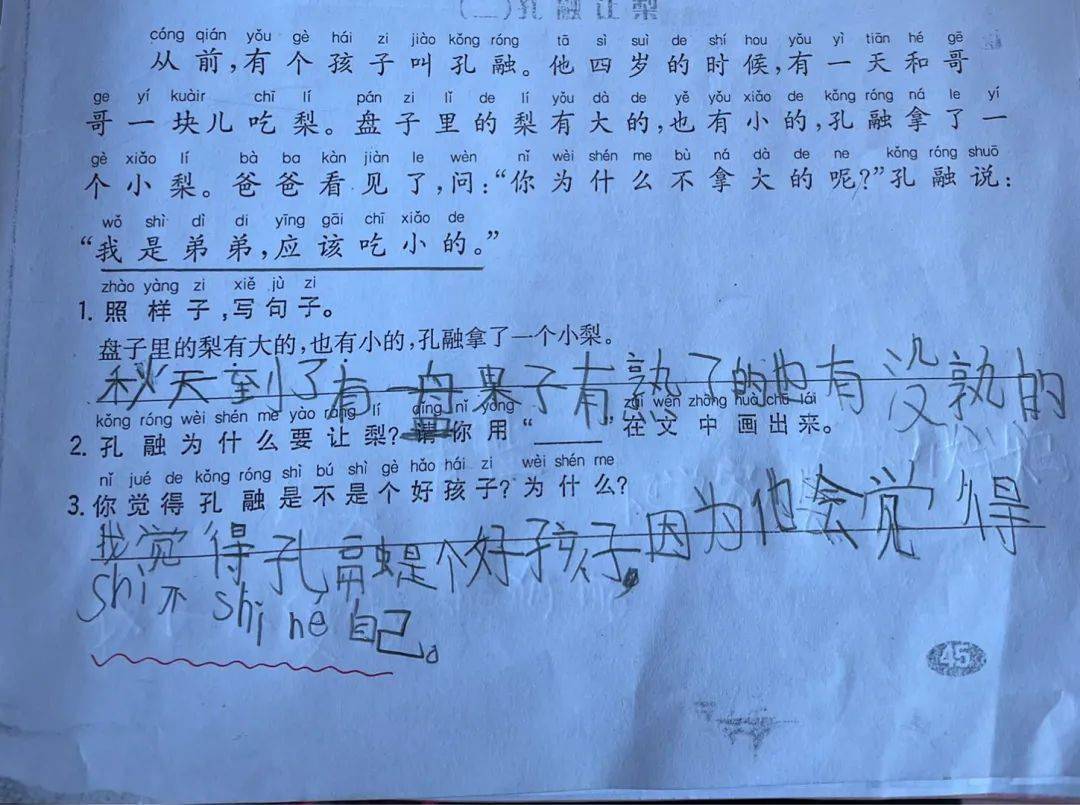 (二)孔融让梨
cóng qián yǒu gè hái zi jiào kǒng róng tā sì suì de shí hou yǒu yì tiān hé gē
从前,有个孩子叫孔融。他四岁的时候,有一天和哥
ge yí kuàir chī lí pán zi lǐ de lí yǒu dà de yě yǒu xiǎo de kǒng róng ná le yí
哥一块儿吃梨。盘子里的梨有大的,也有小的,孔融拿了一
gè xiǎo lí bà ba kàn jiàn le wèn nǐ wèi shén me bù ná dà de ne kǒng róng shuō
个小梨。爸爸看见了,问:“你为什么不拿大的呢?”孔融说:
wǒ shì dì di yīng gāi chī xiǎo de
“我是弟弟,应该吃小的。”
zhào yàng zi xiě jù zi
1. 照样子,写句子。
盘子里的梨有大的,也有小的,孔融拿了一个小梨。
秋天到了有一盘果子有熟了的也有没熟的
kǒng róng wèi shén me yào ràng lí qǐng nǐ yòng zài wén zhōng huà chū lái
2. 孔融为什么要让梨?请你用“______”在文中画出来。
nǐ jué de kǒng róng shì bú shì gè hǎo hái zi wèi shén me
3. 你觉得孔融是不是个好孩子?为什么?
我觉得孔融是个好孩子,因为他会觉得
shi不shi he自己。
45